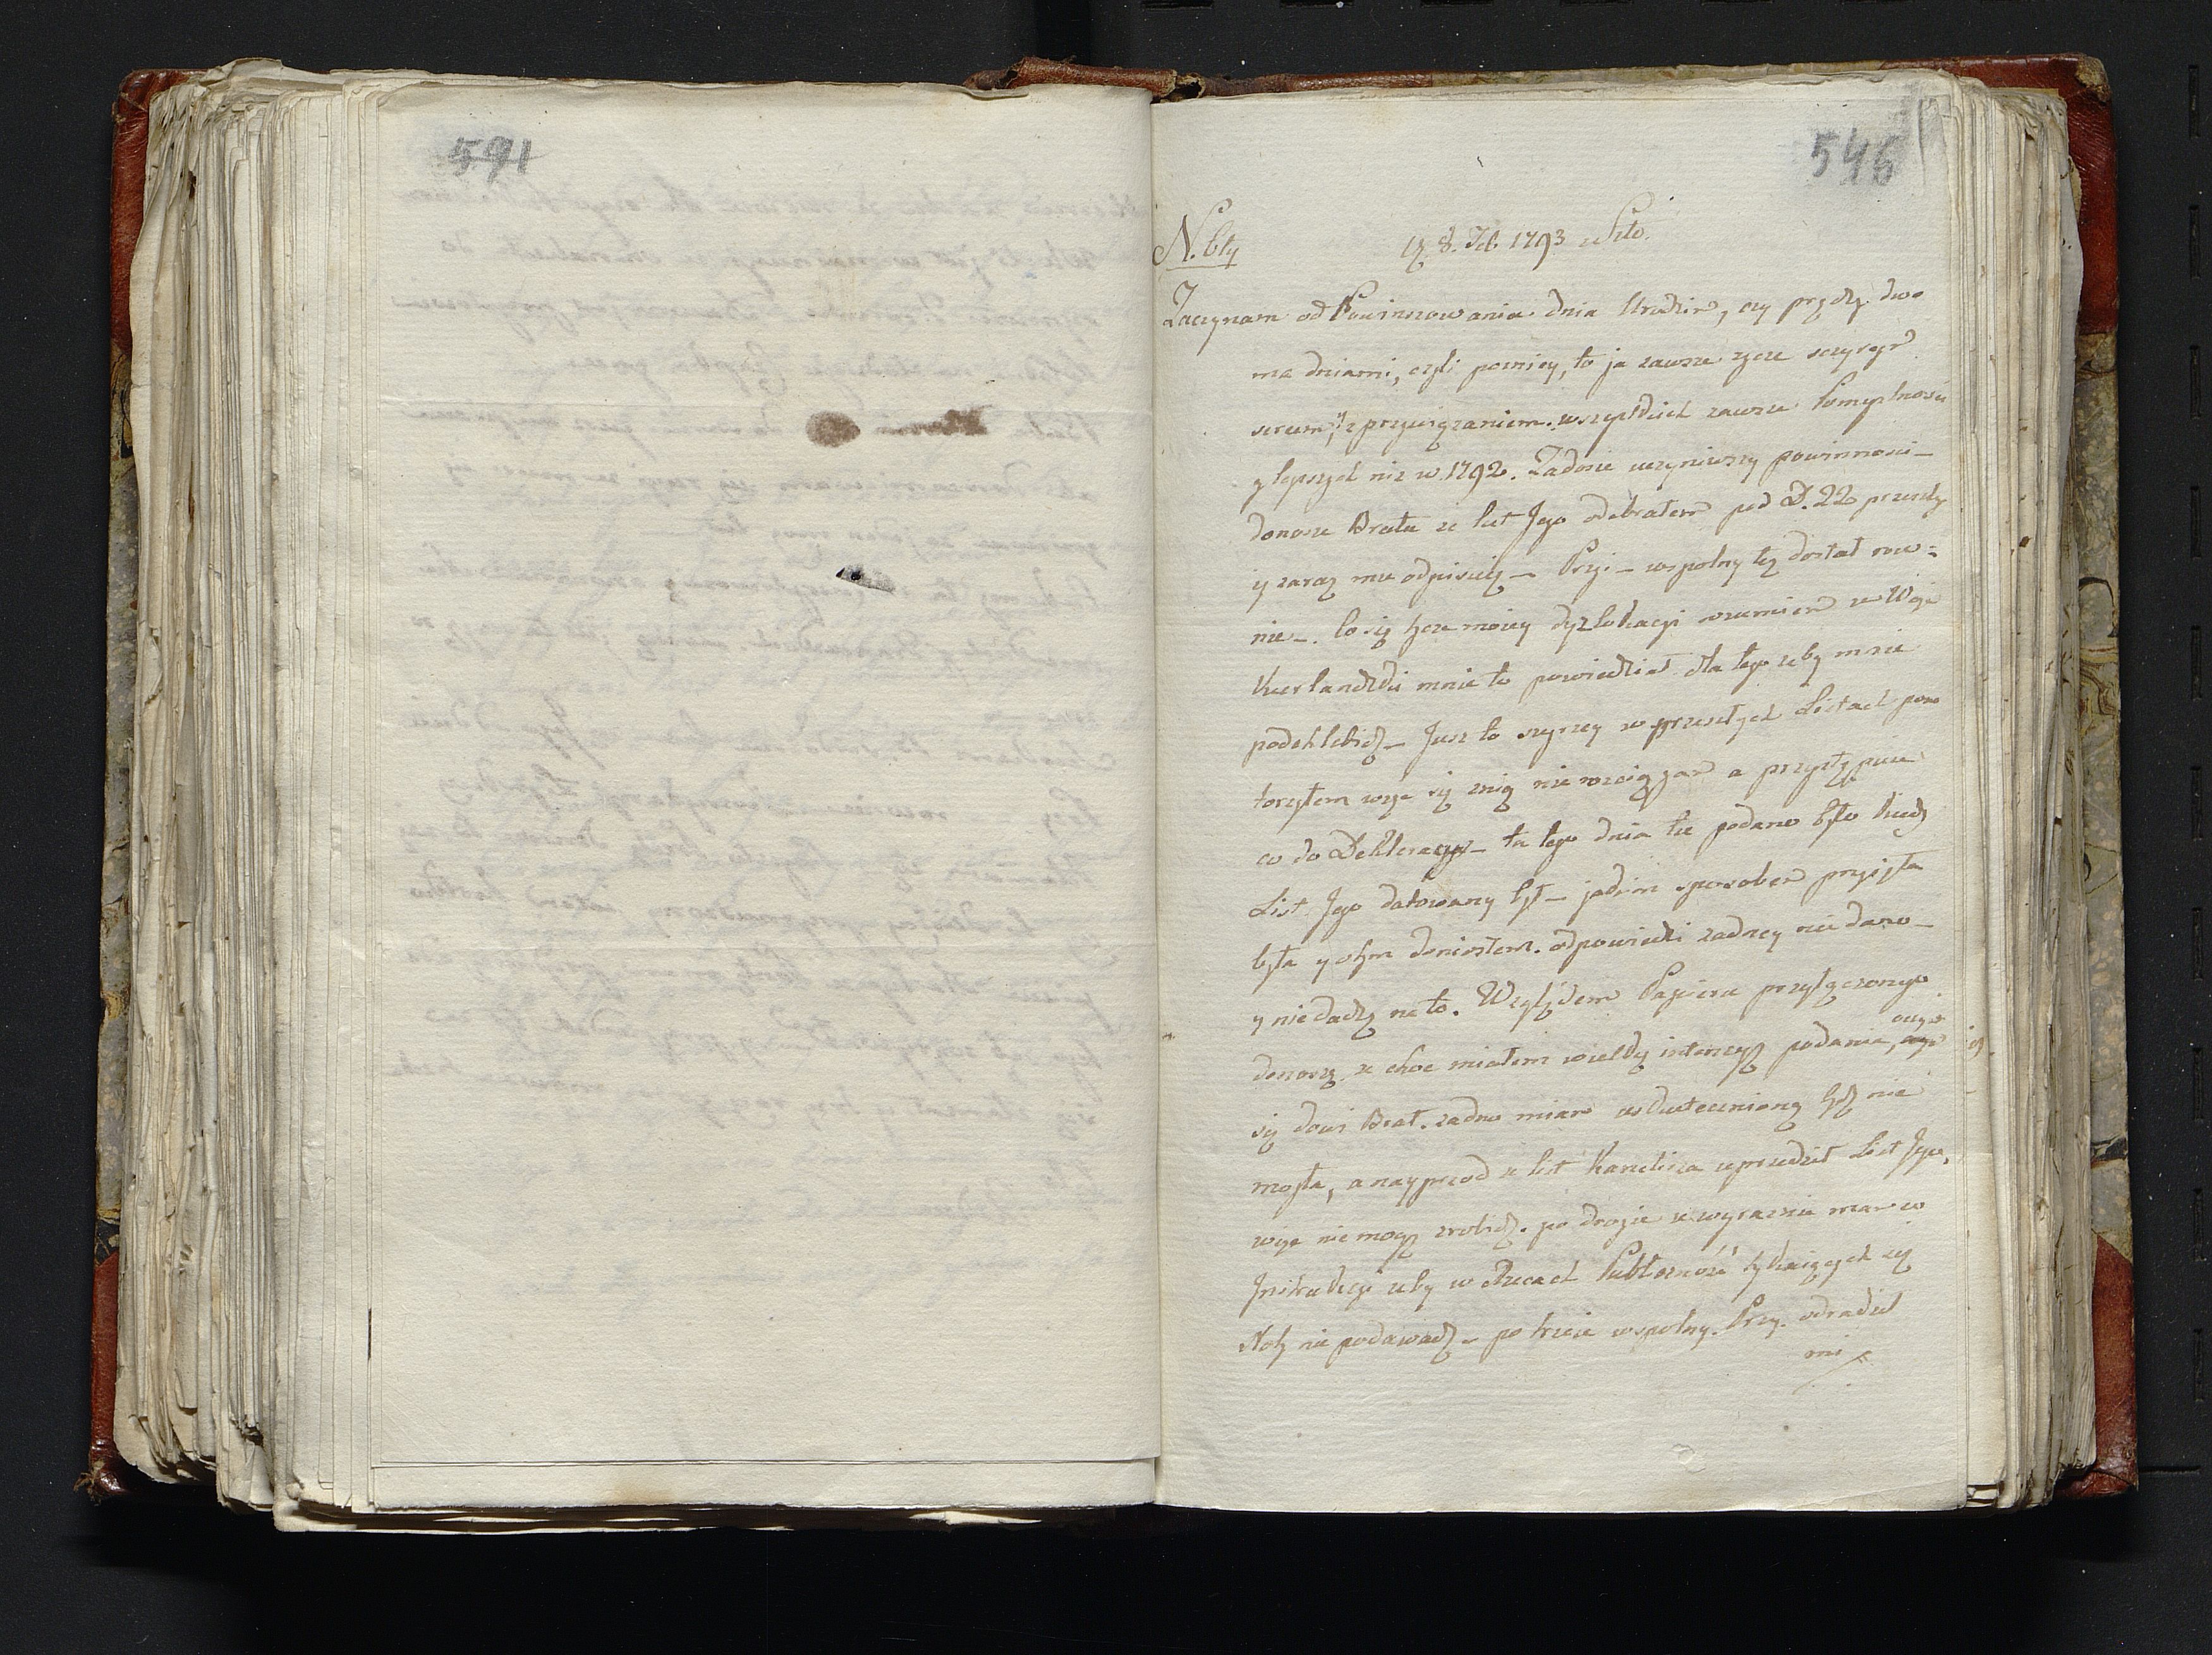 591
546
N. 6ty
8. Feb 1793 z Szto.
Zaczynam od Powinszowania dnia Urodzin, czy prędzy. dwo
ma dniami, czyli pozniey, to ja zawsze zycze sczyrym
sercem, y z przywiązaniem. wszystkich zawsze Pomyslnosci
y lepszych niz w 1792. Zadosic uczyniwszy powinnosci _
donosze Bratu ze list Jego odebrałem pod D. 22 przeszły
y zaraz mu odpisuię _ Przy. _ wspolny tez dostał row=
nie _. Co się tycze moiey dyzlokacyi rozumiem ze Woje
Kurlandzki mnie to powiedział dla tego zeby mnie
podchlebić _ Juz to szyrzey w przeszłych Listach pow
torzyłem więc się nie rozciągam a przystępuie
co do Deklaracyi _ tu tego dnia tu podano było kiedy
List Jego datowany był _ jednim sposobem przyięta
była y o tym doniosłem. odpowiedzi zadney nie dano _
y nie dadzą na to. Względem Papieru przyłączonego
donoszę ze choc miałem wielką intencyą podania,
się dowi Brat. zadno miaro uskutecznioną bydz nie
mogła, a nayprzod ze list Kanclerza uprzedził List Jego,
więc nie mogę zrobić. po drugie ze wyraznie mam w
Instrukcyi zeby w Rzeczach Publiczność tykaiących się
Noty nie podawać _ po trzecie wspolny. Przy. odradził
mi